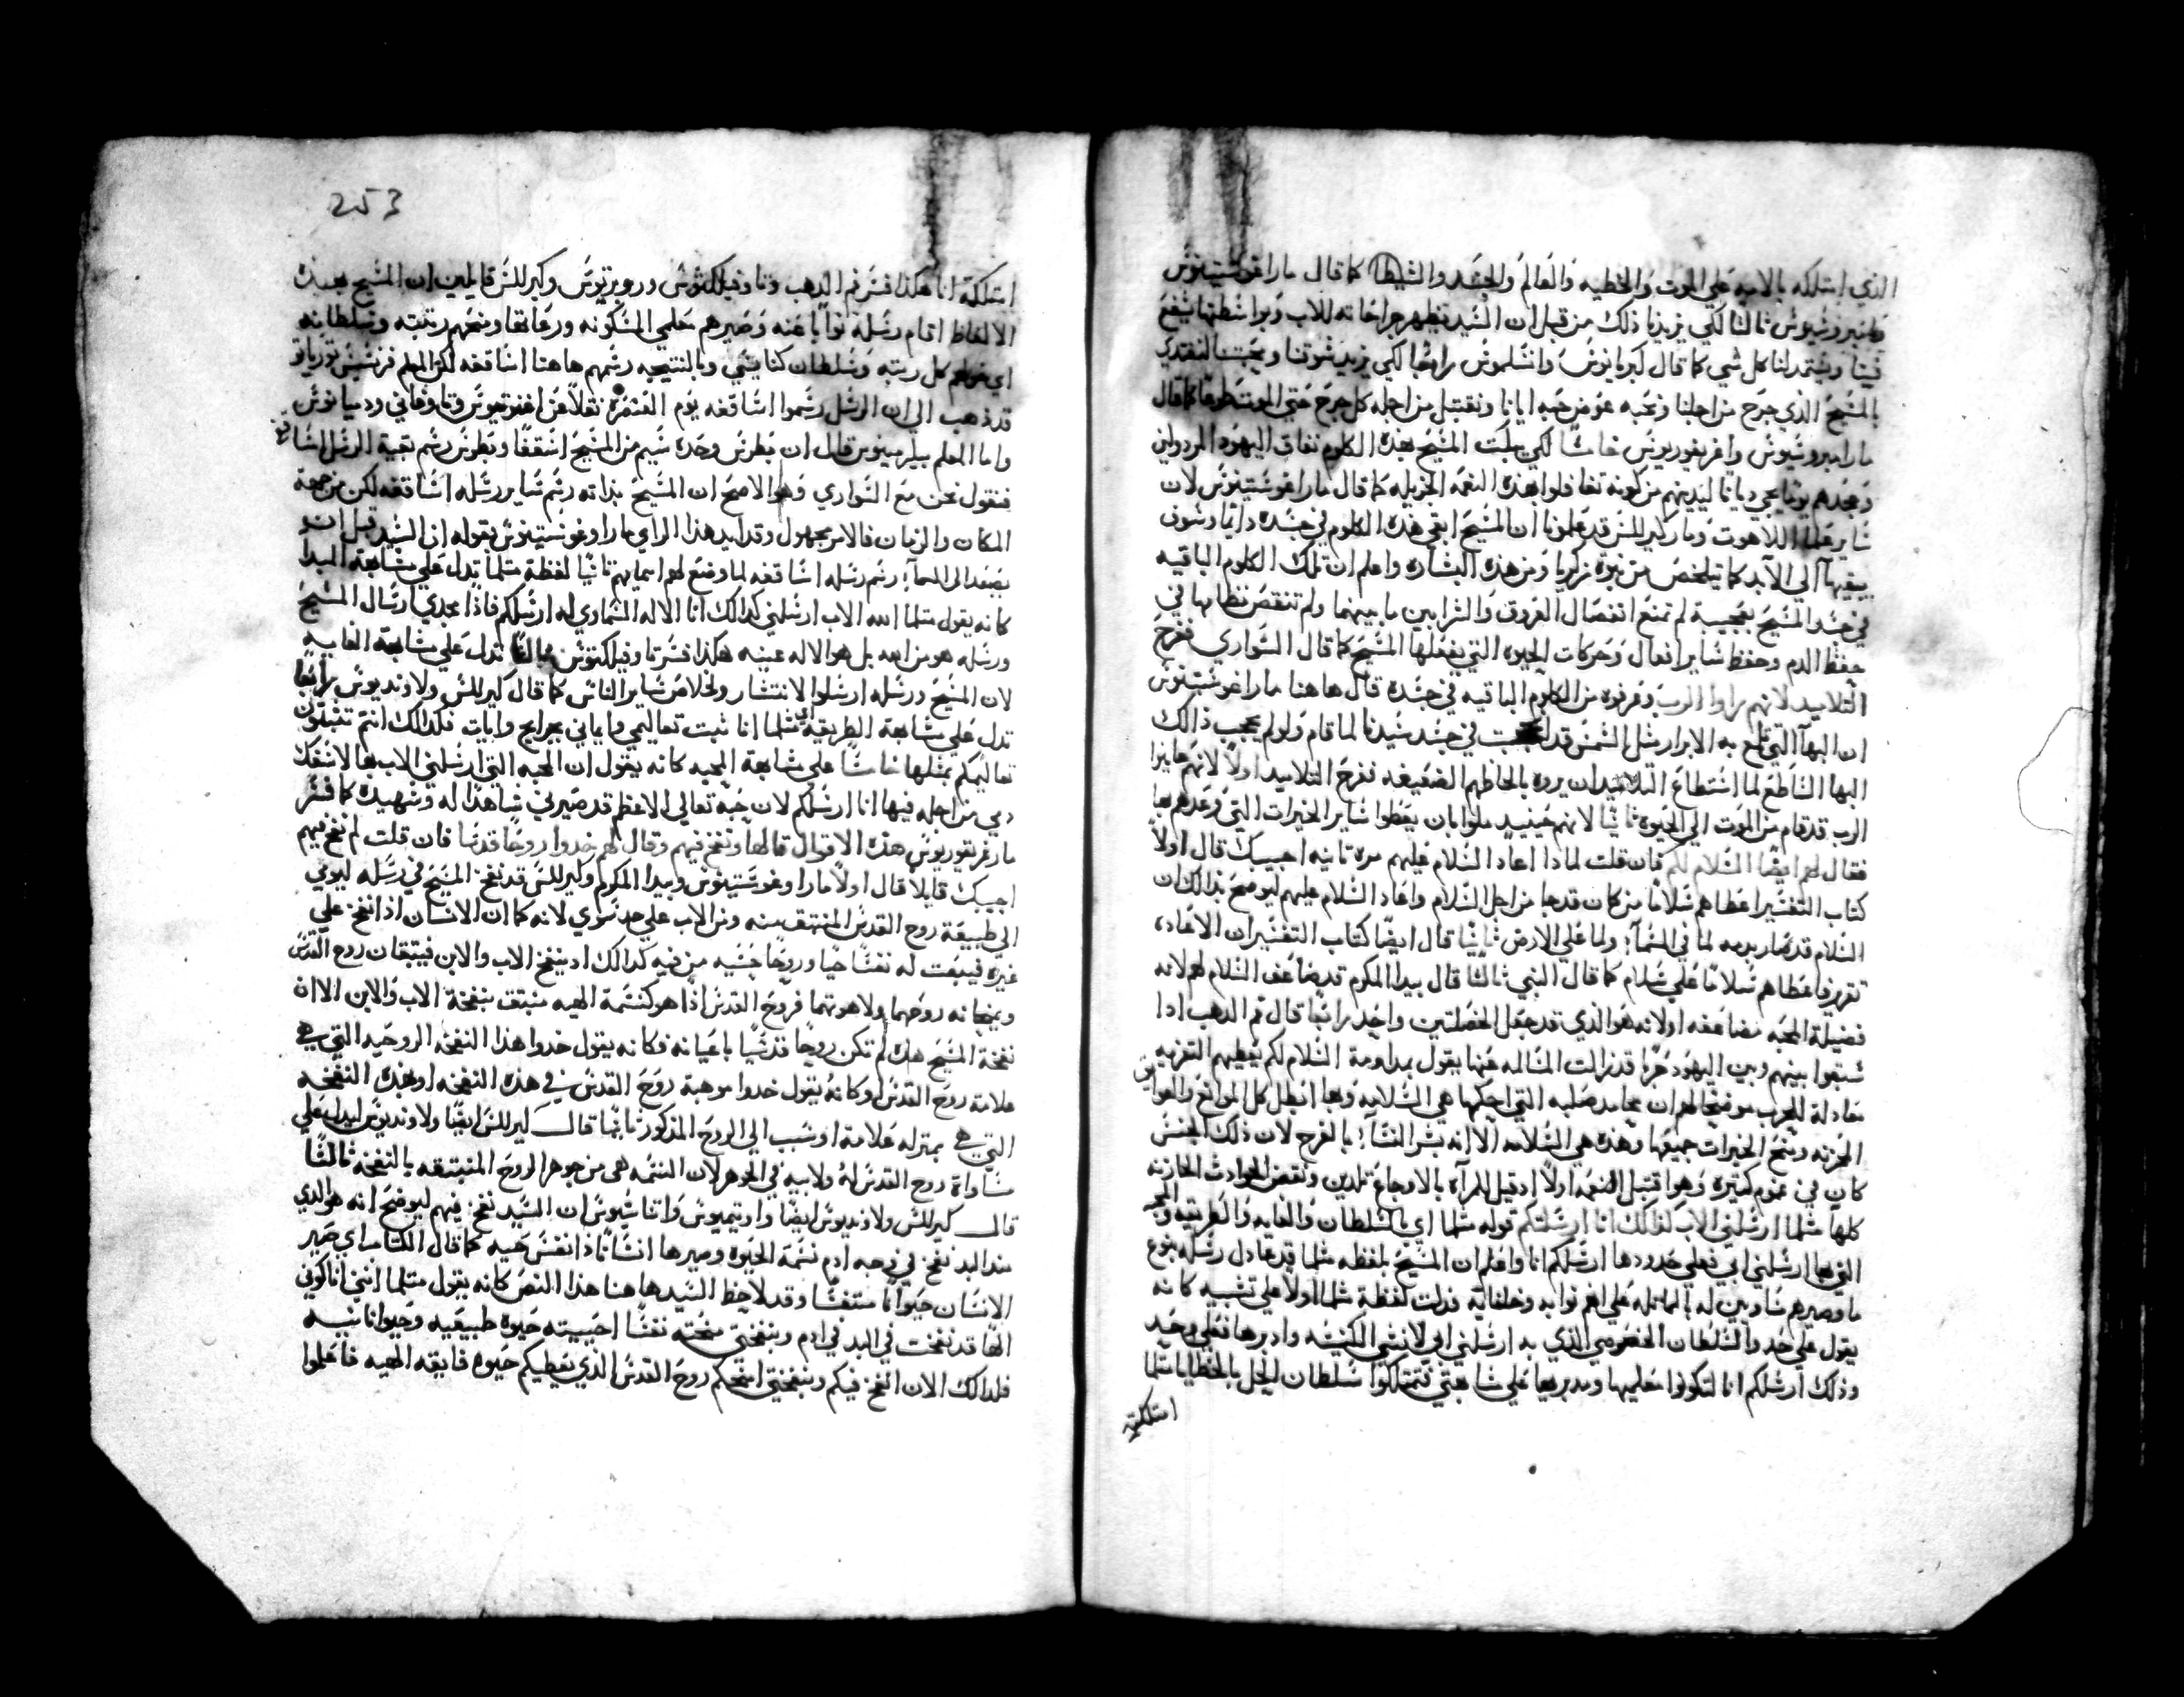 الذي امتلكه بالامه علي الموت والخطيه والعالم والجسد والشيطان كما قال ماراغوستينوس
وامبروسيوس ثالثا لكي يزيدنا ذلك من قبل ان السيد يظهر جراحاته للاب وبواسطتها يشفع
فينا ويستمد لنا كل شي كما قال كبريانوس وانسلموس رابعا لكي يزيد شوقنا ومحبتنا لنقتدي
بالمسيح الذي جرح من اجلنا ونحبه عوض حبه ايانا ونقتبل من اجله كل جرح حتي الموت طوعا كما قال
مارامبروسيوس واغريغوريوس خامسا لكي يبكت المسيح بهذه الكلوم نفاق اليهود المردولين
وبجدهم يوم يجي ديانا ليدينهم من كونه تغافلوا بهذه النعمه الجزيله كما قال ماراغوستينوس لان
ساير علما اللاهوت ومار كيرللس قد علمونا ان المسيح ابقي هذه الكلوم في جسده دايما وسوف
يبقيها الي الابد كما يتلخص من نبوة زكريا ومن هذه البشاره واعلم ان تلك الكلوم الباقيه
في جسد المسيح بعجيبة لم تمنع اتصال العروق والشرايين ما بينهما ولم تنقص نظامها في
حفظ الدم وحفظ ساير افعال وحركات الحيوه التي يفعلها المسيح كما قال السواري ففرح
التلاميد لانهم راوا الرب وعرفوه من الكلوم الباقيه في جسده قال هاهنا ماراغوستينوس
ان البها التي تلمع به الابرار مثل الشمس قد احتجبت في جسد سيدنا لما قام ولو لم يحجب ذالك
البها الساطع لما استطاع التلاميد ان يروه بالحاظهم الضعيفه ففرح التلاميد اولا لانهم عاينوا
الرب قد قام من الموت الي الحيوه ثانيا لانهم حينيد ملوا بان يعطوا ساير الخيرات التي وعدهم بها
فقال لهم ايضا السلام لكم فان قلت لمادا اعاد السلام عليهم مرة تانيه اجيبك قال اولا
كتاب التفسير اعطاهم سلاما من كان قد جا من اجل السلام واعاد السلام عليهم ليوضح بذالك ان
السلام قد صار بدمه لما في السما ولما علي الارض ثانيا قال ايضا كتاب التفسير ان الاعاده
تقرير فاعطاهم سلاما علي سلام كما قال النبي ثالثا قال بيدا المكرم قد ضاعف السلام لهم لانه
فضيلة المحبه مضاعفه اولانه هو الذي قد جعل الخصلتين واحد رابعا قال فم الدهب ادا
سبقوا بينهم وبين اليهود حربا قد زالت المسالمه عنها بقول بمداومة السلام لكم يعطيهم التعزيه
معادلة للحرب موضحا لهم ان محامد صلبه التي احكمها هي السلامه وبها ابطل كل الموانع والعوايق
المحزنه ومنح الخيرات جميعها وهذه هي السلامه الا انه بشر النسا بالفرح لان ذلك الجنس
كان في غموم كثيره وهو اقتبل النعمه اولا اد قيل للمراه بالاوجاع تلدين ونقض الحوادث الحازنه
كلها مثلما ارسلني الاب كذلك انا ارسلكم قوله مثلما اي بالسلطان والغايه والطريقه والمحبه
التي بها ارسلني ابي فعلي حدودها ارسلكم انا واعلم ان المسيح بلفظه مثلما قد عادل رسله بنوع
ما وصيرهم مساويين له بالماثله علي انهم نوابه وخلفايه فدلت لفظة مثلما اولا علي تشبيه كانه
يقول علي حد والسلطان الخصوصي الذي به ارسلني ابي لانشي الكنيسه وادبرها فعلي وحيد
وذلك ارسلكم انا لتكونوا معلميها ومدبريها علي شاهبتي فتمتلكوا سلطان الحل بالخطايا مثلما
امتلكته
253
امتلكته انا هكذا فسر فم الدهب وتاوفيلكتوس وروبرتوس وكيرللس قايلين ان المسيح بهذه
الالفاظ اقام رسله نوابا عنه وصيرهم معلمي المسكونه ورعاتها ومنحهم رتبته وسلطانه
اي خولهم كل رتبه وسلطان كنايسي وبالنتيجه رسمهم هاهنا اساقفه لكن المعلم فرنسيس توريانو
قد ذهب الي ان الرسل رسموا اساقفه يوم العنصره نقلا عن اغنوتيوس وتاوفاني ودميانوس
واما المعلم بيلرمينوس قايل ان بطرس وحده سيم من المسيح اسقفا وبطرس رسم بقية الرسل اساقفه
فنقول نحن مع السواري وهو الاصح ان المسيح بذاته رسم ساير رسله اساقفه لكن من جهة
المكان والزمان فالامر مجهول وقد ايد هذا الراي ماراوغوستينوس بقوله ان السيد قبل ان
يصعد الي السما رسم رسله اساقفه لما وضع لهم ايمانهم ثانيا لفظة مثلما تدل علي مشابهة المبدا
كانه يقول مثلما الله الاب ارسلني كدالك انا الاله السماوي له ارسلكم فاذا مجدي ارسال المسيح
ورسله هو من الله بل هو الاله عينه هكذا فسر تاوفيلكتوس ثالثا تدل علي مشابهة الغايه
لان المسيح ورسله ارسلوا لانتشار ولخلاص ساير الناس كما قال كيرللس ولاونديوس رابعا
تدل علي مشابهة الطريقه اي مثلما انا ثبت تعاليمي وايماني بجرايح وايات فكدالك انتم تثبتون
تعاليمكم بمثلها خامسا علي مشابهة المحبه كانه يقول ان المحبه التي ارسلني الاب بها لاسفك
دمي من اجله فبها انا ارسلكم لان حبه تعالي الاعظم قد صيرني شاهدا له وشهيده كما فسر
مار غريغوريوس هذه الاقوال قالها ونفخ فيهم وقال لهم خدوا روحا قدسا فان قلت لم نفخ فيهم
اجيبك قايلا قال اولا ماراوغوستينوس وبيدا المكرم وكيرللس قد نفخ المسيح في رسله ليومي
الي طبيعة روح القدس المنبثق منه ومن الاب علي حد سوي لانه كما ان الانسان اذا نفخ علي
غيره فيبعت له نفسا حيا وروحا جسيه من فيه كدالك اد ينفخ الاب والابن فيبثقان روح القدس
وينفحانه روحهما ولاهوتهما فروح القدس اذا هو كنسمة الهيه منبثق بنفخة الاب والابن الا ان
نفخة المسيح هذه لم تكن روحا قدسيا باعيانه فكانه يقول خدوا هذا النفخه الروحيه التي هي
علامة روح القدس اوكانه يقول خدوا موهبة روح القدس في هذه النفخه او بهذه النفخه
التي هي بمنزله علامة او سبب الي الروح المذكور ثانيا قال كيرللس ايضا ولاونديوس ليدل علي
مساواة روح القدس له ولابيه في الجوهر لان النسمه هي من جوهر الروح المنبثقه بالنفخه ثالثا
قال كيرللس ولاونديوس ايضا واوتيميوس واتناسيوس ان السيد نفخ فيهم ليوضح انه هو الذي
مند البد نفخ في وجه ادم نسمة الحيوه وصيرها انسانا ذا نفس حيه كما قال الكتاب اي صير
الانسان حيوانا متنفسا وقد لاحظ السيد هاهنا هذا النص كانه يقول مثلما انني انا كوني
الها قد نفخت في البد في ادم وبنفختي منحته نفسا احييته حيوه طبيعيه وحيوانانيه
فلدالك الان انفخ فيكم وبنفختي امنحكم روح القدس الذي يعطيكم حيوه فايقه الهيه فاعلموا